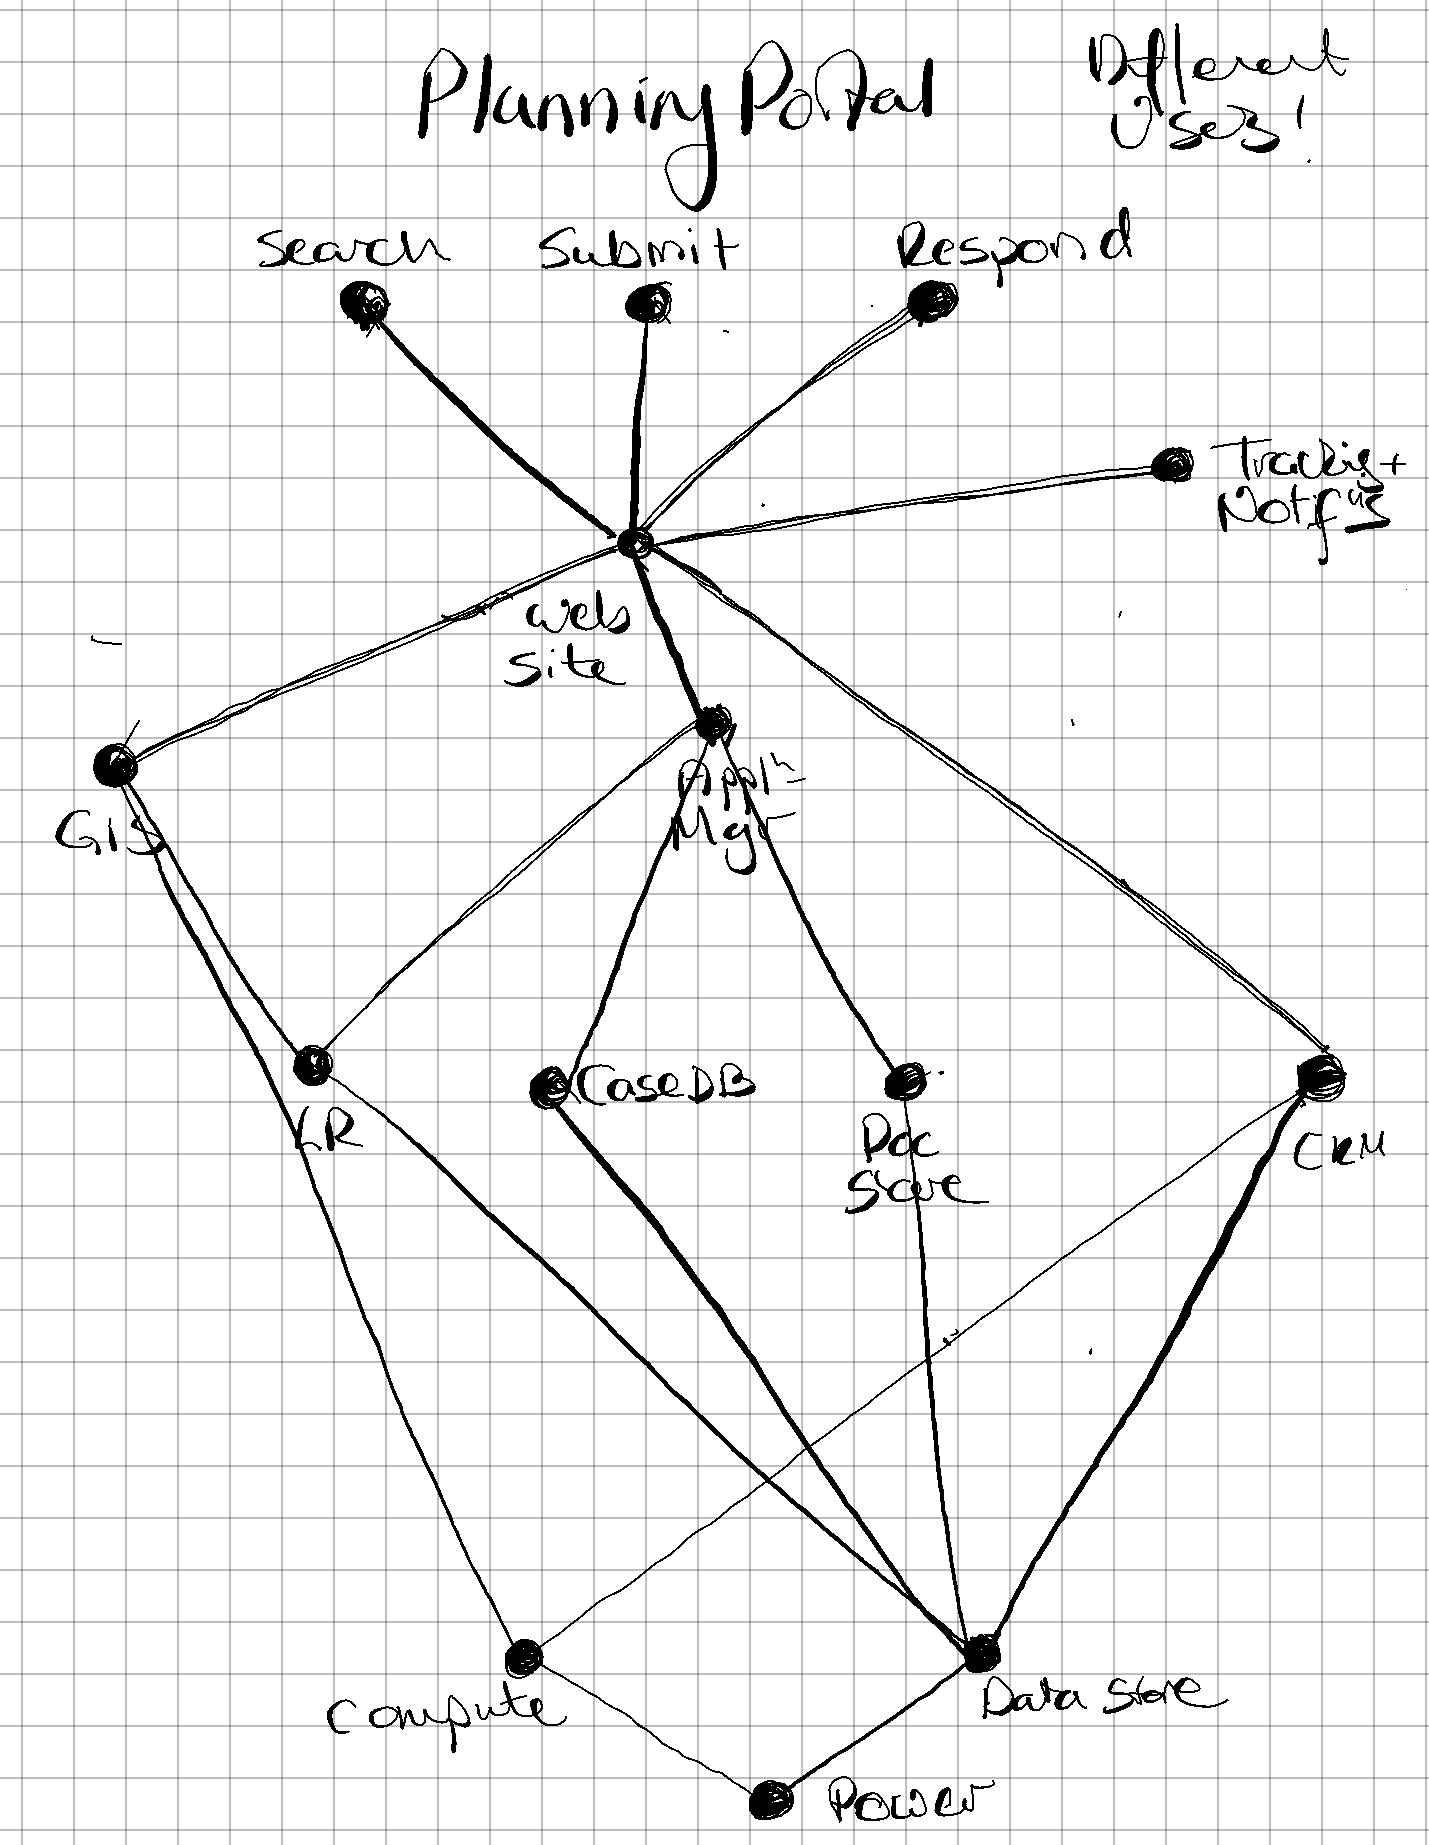 Planning Portal
Different
Users!
Search
Submit
Respond
Tracking +
Notifns
Web
Site
Appln
Mgr
GIS
LR
CaseDB
Doc
Store
CRM
Compute
Data Store
Power